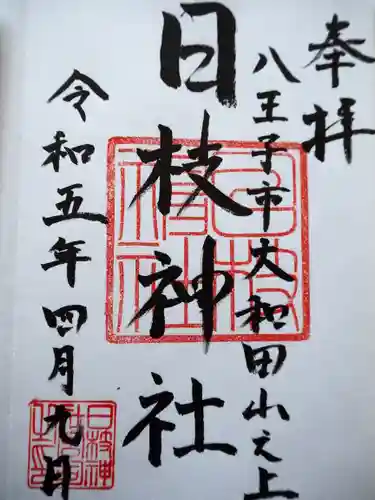 奉拝
八王子市大和田山之上
日枝神社
令和五年四月九日
日枝神